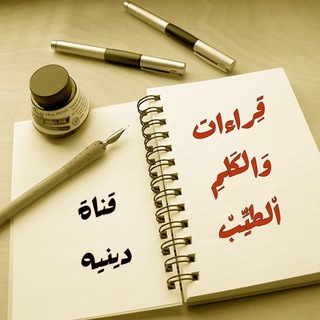 قِراءات
وَالكَلمِ
اْلطيِّبْ
قناة
دينيه